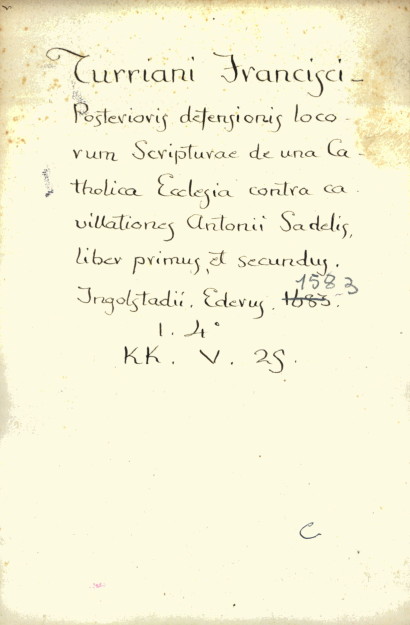 Turriani Francisci-
Posterioris defensionis loco-
rum Scripturae de una Ca-
tholica Ecclesia contra ca-
villationes Antonii Sadelis,
liber primus, et secundus.
Ingolstadii. Ederus. 1683. 1583
1. 4°
KK. V. 29.
C